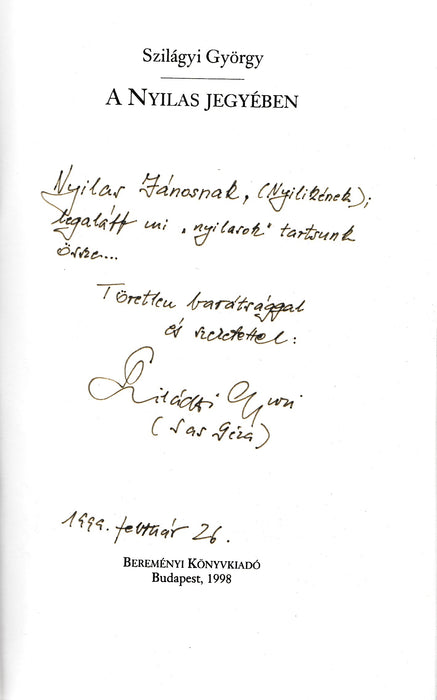 Szilágyi György
A NYILAS JEGYÉBEN
Nyilas Jánosnak, (Nyilikének);
legalább mi „nyilasok" tartsunk
össze...
Töretlen barátsággal
és szeretettel:
Szilágyi Gyuri
(Sas Géza)
1999. február 26.
BEREMÉNYI KÖNYVKIADÓ
Budapest, 1998